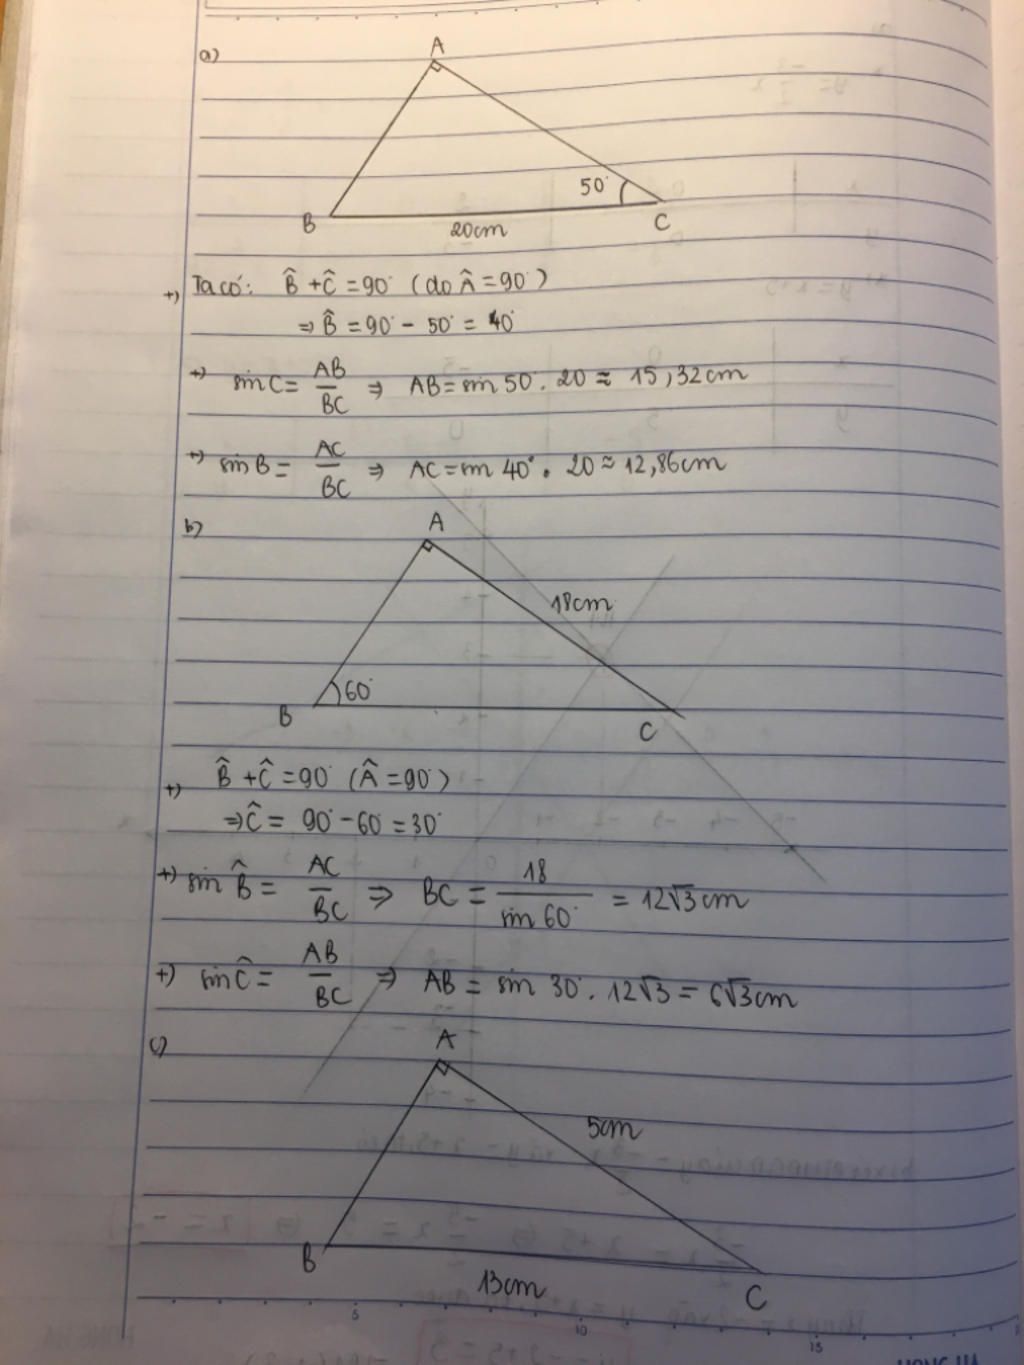 a)
A
50°
B
20cm
C
+) Ta có: B̂ + Ĉ = 90° (do Â = 90°)
⇒ B̂ = 90° - 50° = 40°
+) sin C = AB/BC ⇒ AB = sin 50°. 20 ≈ 15,32cm
+) sin B = AC/BC ⇒ AC = sin 40°. 20 ≈ 12,86cm
b)
A
18cm
60°
B
C
+) B̂ + Ĉ = 90° (Â = 90°)
⇒ Ĉ = 90° - 60° = 30°
+) sin B̂ = AC/BC ⇒ BC = 18/sin 60° = 12√3cm
+) sin Ĉ = AB/BC ⇒ AB = sin 30°. 12√3 = 6√3cm
c)
A
5cm
B
13cm
C
5
10
15